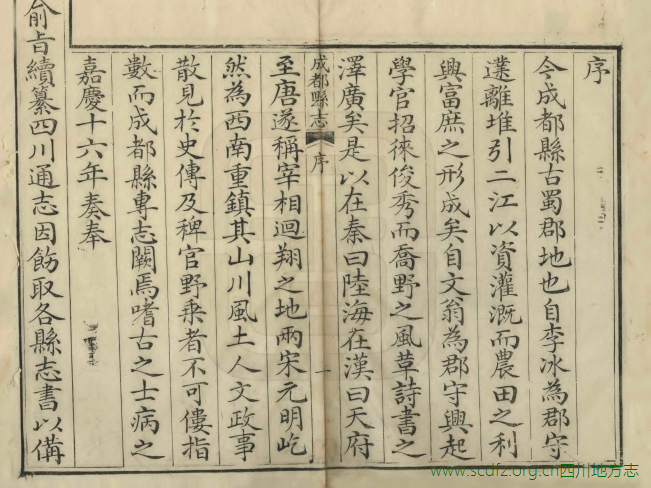 序
今成都縣古蜀郡地也自李冰為郡守
鑿離堆引二江以資灌溉而農田之利
興富庶之形成矣自文翁為郡守興起
學官招徠俊秀而喬野之風革詩書之
澤廣矣是以在秦曰陸海在漢曰天府
成都縣志 序 一
至唐遂稱宰相迴翔之地兩宋元明屹
然為西南重鎮其山川風土人文政事
散見於史傳及稗官野乘者不可僂指
數而成都縣專志闕焉嗜古之士病之
嘉慶十六年奏奉
俞旨續纂四川通志因飭取各縣志書以備
www.scdfz.org.cn四川地方志